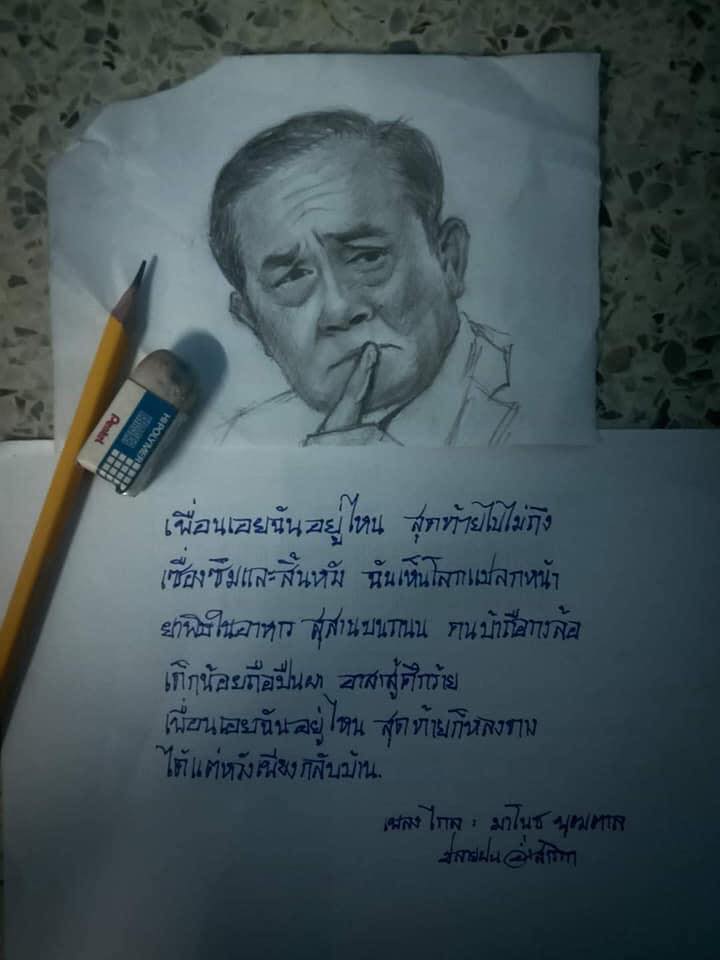 Pentel
HI-POLYMER
เพื่อนเอยฉันอยู่ไหน สุดท้ายไปไม่ถึง
เซื่องซึมและสิ้นหวัง ฉันเห็นโลกแปลกหน้า
ยาพิษในอาหาร สุสานบนถนน คนบ้าถือกรล้อ
เด็กน้อยถือปืนผา อาสาสู้ศึกร้าย
เพื่อนเอยฉันอยู่ไหน สุดท้ายก็หลงทาง
ได้แต่หวังเพียงกลับบ้าน.
เพลง ไกล : มาโนช พุฒตาล
ปลายฝน